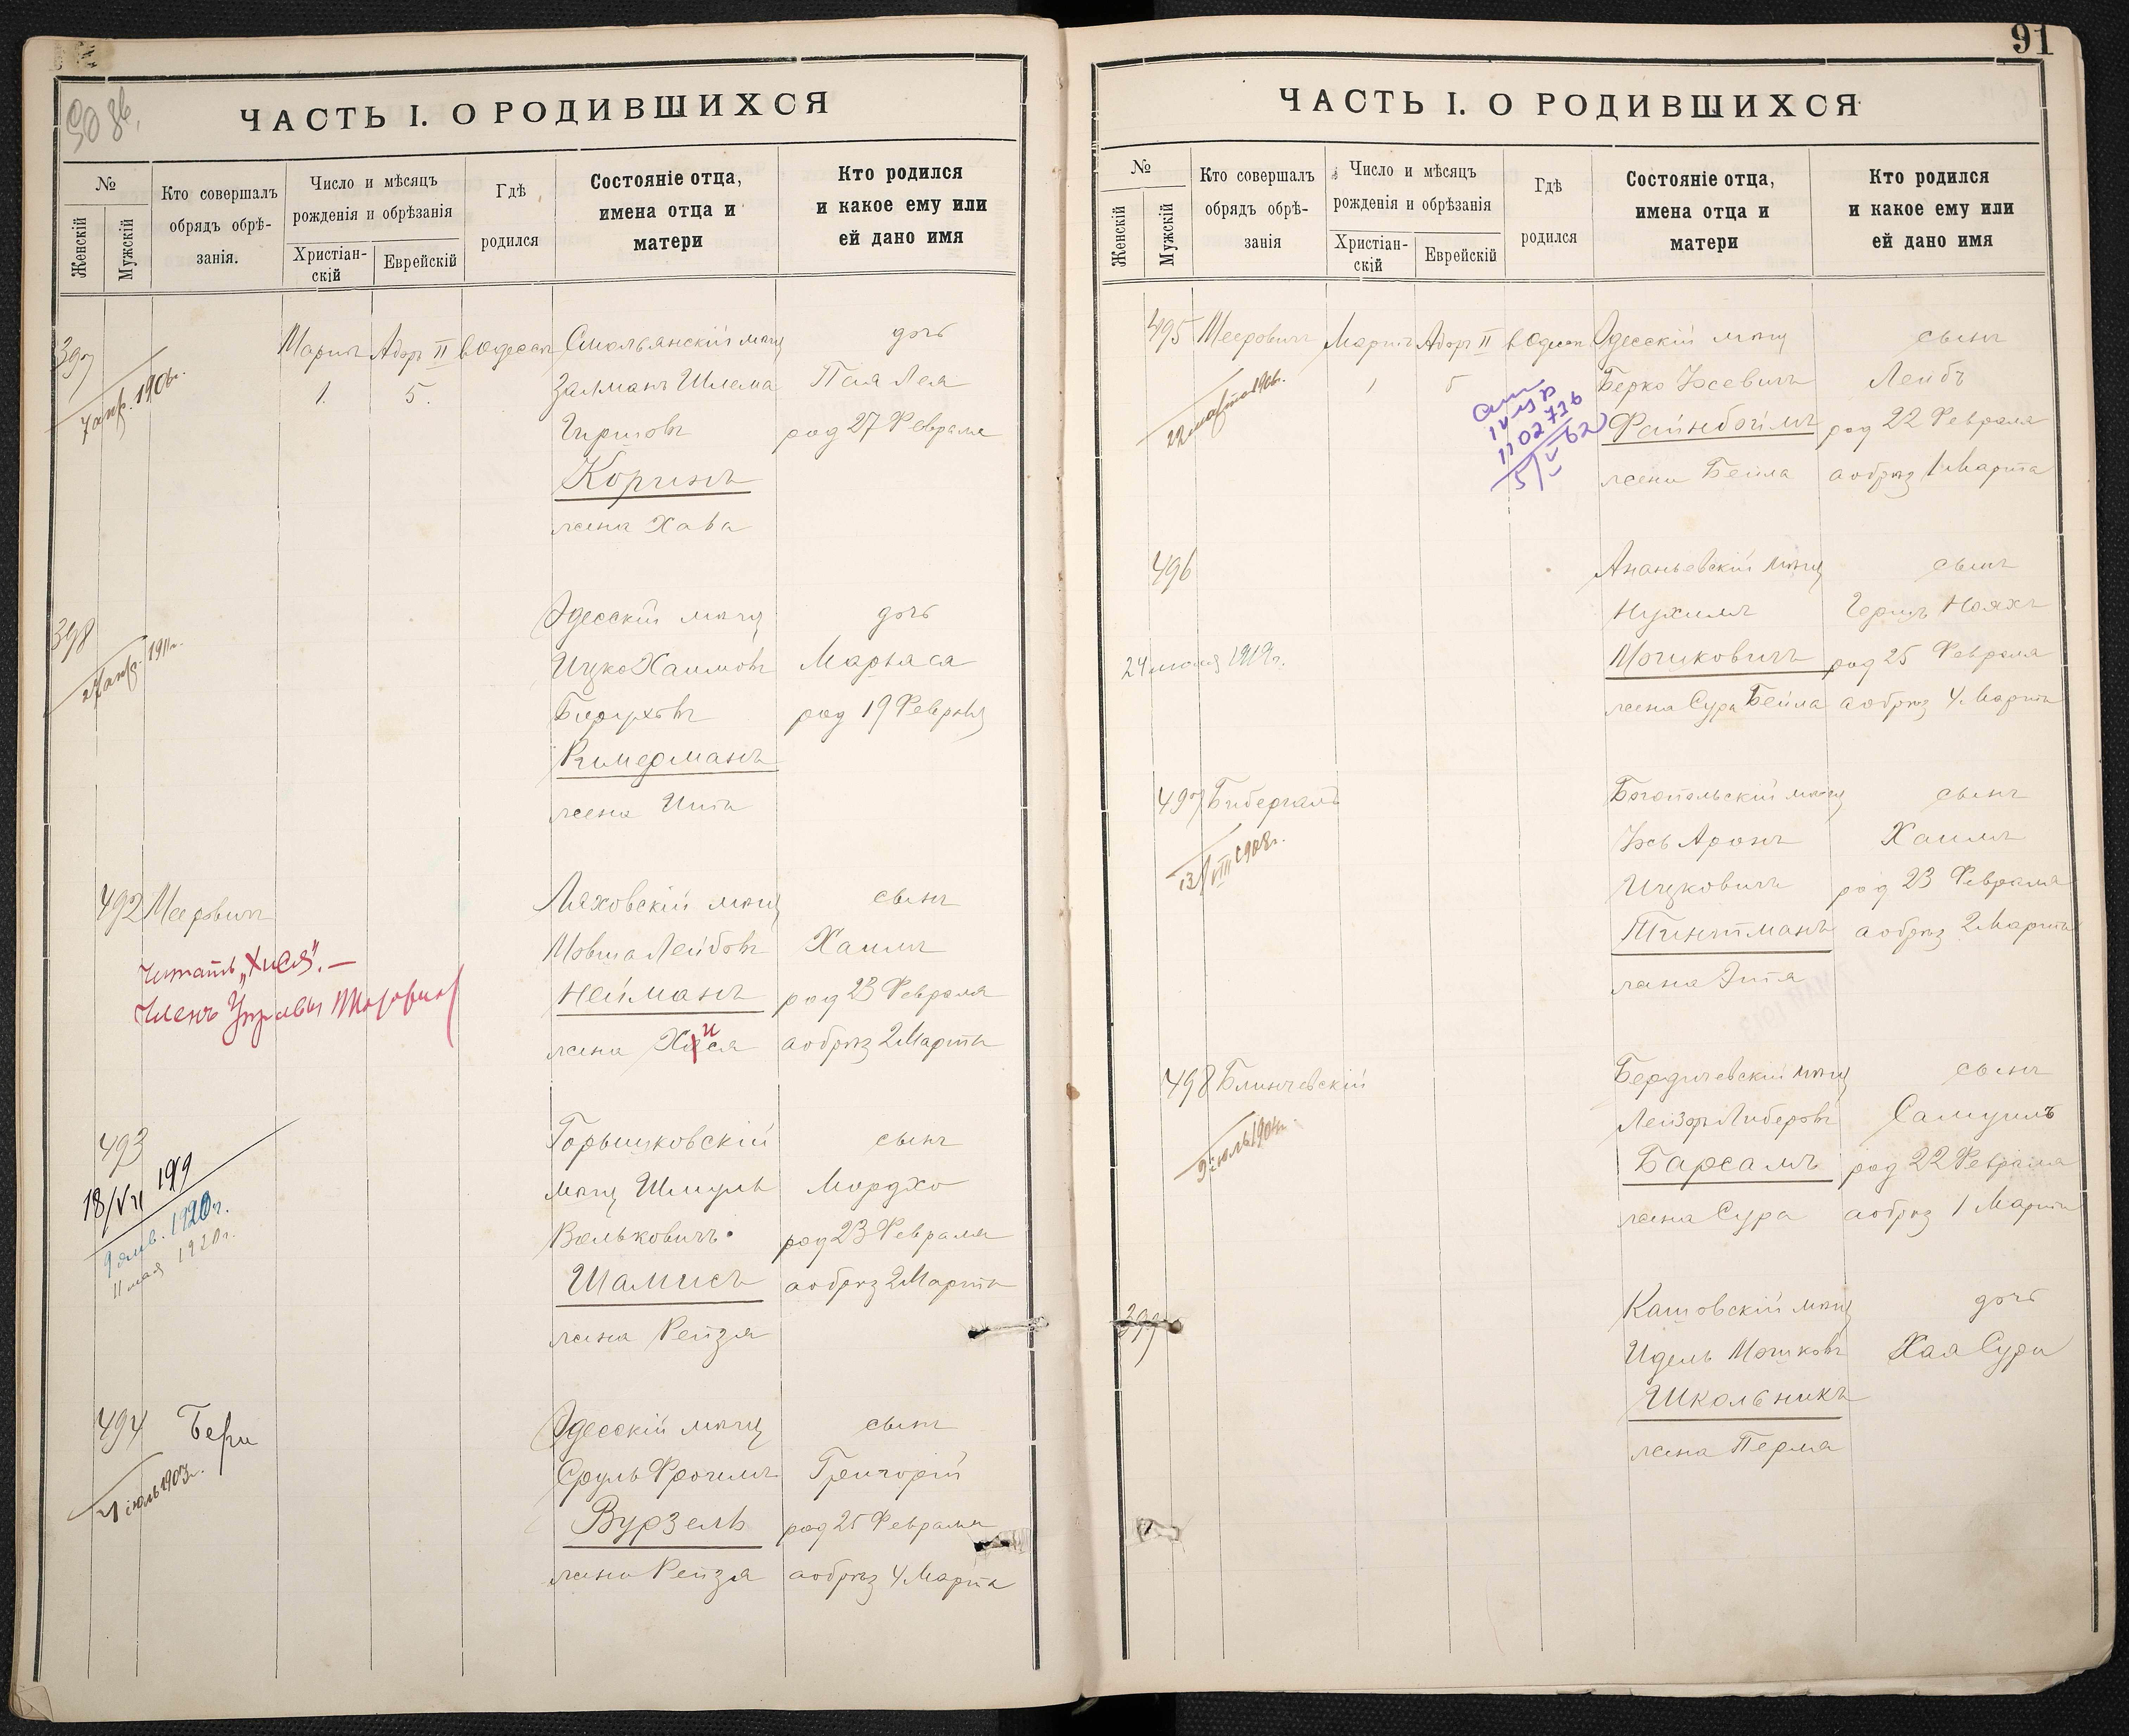 ЧАСТЬ I. О РОДИВШИХСЯ
№
Женскій
Мужскій
Кто совершалъ
обрядъ обрѣ-
занія.
Число и мѣсяцъ
рожденія и обрѣзанія
Христіан-
скій
Еврейскій
Гдѣ
родился
Состояніе отца,
имена отца и
матери
Кто родился
и какое ему или
ей дано имя
397
7 апр. 1906г.
Мартъ
1.
Адоръ II
5.
в Одессѣ
Смольянскій мѣщ
Залманъ Шлема
Гиршовъ
Коринъ
жена Хава
дочь
Песя Лея
род 27 Февраля
398
Одесскій мѣщ
Ицко Хаимовъ
Боруховъ
Кимерманъ
жена Ита
дочь
Марьяса
род 19 Февраля
492
Мееровичъ
Читать „Хися“.—
Членъ Управы
Ляховскій мѣщ
Мовша Лейбовъ
Нейманъ
жена Хися
сынъ
Хаимъ
род 23 Февраля
а обрѣз 2 Марта
493
18/VII 1919
9 янв. 1920г.
11 мая 1920г.
Горышковскій
мѣщ Шмуль
Вольковичъ
Шамисъ
жена Рейзя
сынъ
Мордхо
род 23 Февраля
а обрѣз 2 Марта
494
Бери
Одесскій мѣщ
Сруль Фроимъ
Вурзель
жена Рейзя
сынъ
Григорій
род 25 Февраля
а обрѣз 4 Марта
91
ЧАСТЬ I. О РОДИВШИХСЯ
№
Женскій
Мужскій
Кто совершалъ
обрядъ обрѣ-
занія
Число и мѣсяцъ
рожденія и обрѣзанія
Христіан-
скій
Еврейскій
Гдѣ
родился
Состояніе отца,
имена отца и
матери
Кто родился
и какое ему или
ей дано имя
495
22 марта 1906г.
Мееровичъ
Мартъ
1
Адоръ II
5
в Одессѣ
Одесскій мѣщ
Берко Іосевичъ
Файнбоймъ
жена Бейла
сынъ
Лейбъ
род 22 Февраля
а обрѣз 1 Марта
496
1919г.
Ананьевскій мѣщ
Нухимъ
Мошковичъ
жена Сура Бейла
сынъ
Гершъ Нояхъ
род 25 Февраля
а обрѣз 4 Марта
497
13/VIII 1908г.
Бибергалъ
Богопольскій мѣщ
Іось Аронъ
Ицковичъ
Тинтманъ
жена Этя
сынъ
Хаимъ
род 23 Февраля
а обрѣз 2 Марта
498
Блинчевскій
Бердичевскій мѣщ
Лейзоръ Либеровъ
Барсамъ
жена Сура
сынъ
Самуилъ
род 22 Февраля
а обрѣз 1 Марта
399
Кашовскій мѣщ
Идель Мошковъ
Школьникъ
жена Перля
дочь
Хая Сура